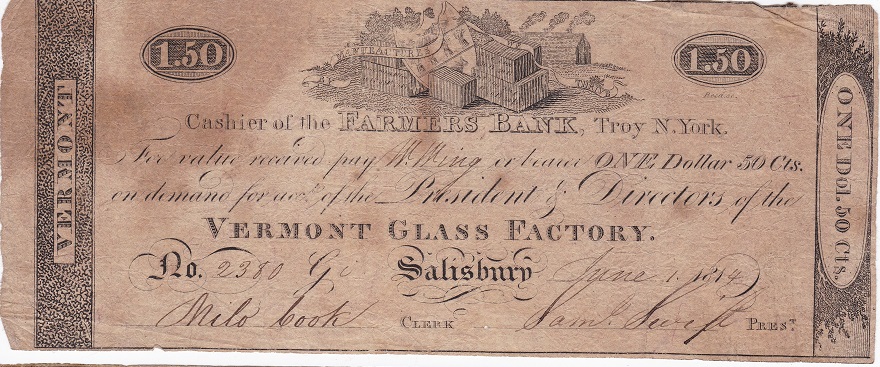 1.50
1.50
VERMONT
ONE Dol. 50 Cts.
Cashier of the FARMERS BANK, Troy N. York.
For value received pay W. Wing or bearer ONE Dollar 50 Cts.
on demand for acct. of the President & Directors of the
VERMONT GLASS FACTORY.
No. 2380 Salisbury June 1. 1814
Milo Cook CLERK Saml. Swift PREST